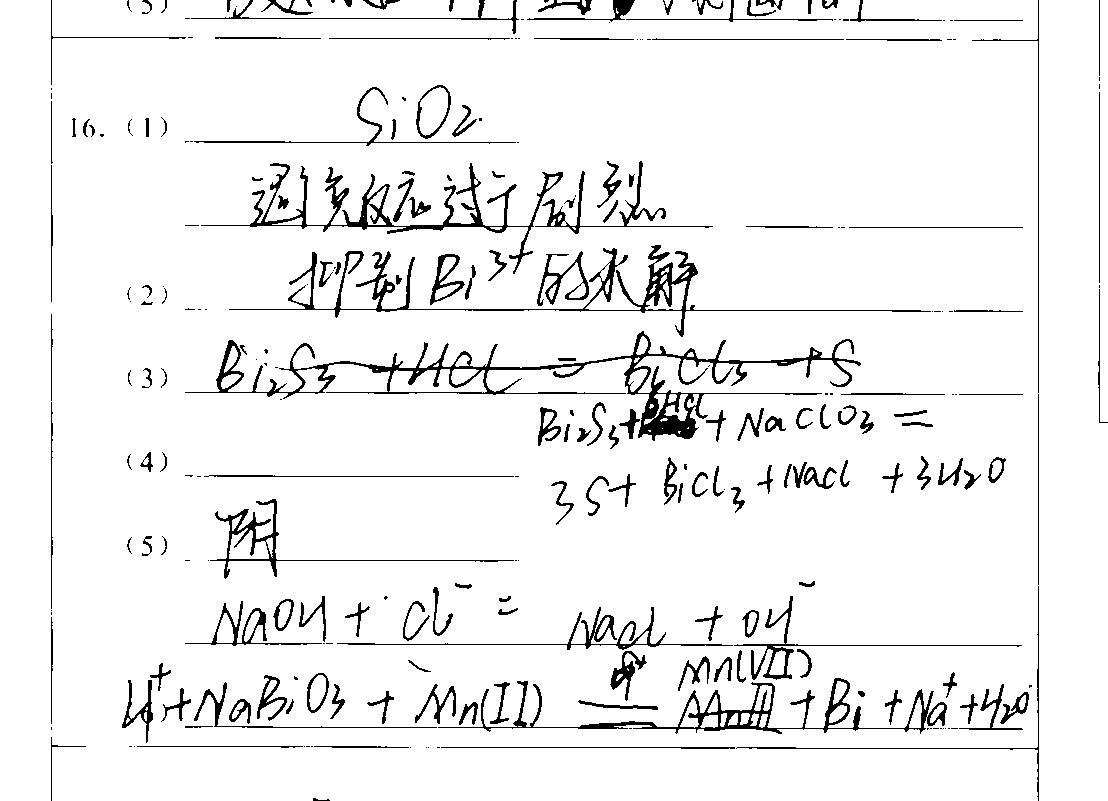 (3)
16. (1) SiO2
避免反应过于剧烈
(2) 抑制Bi3+的水解
(3) Bi2S3 +HCl = BiCl3 + S
Bi2S3+6HCl + NaClO3 =
(4)
3S+ BiCl3 + NaCl + 3H2O
(5) 阴
NaOH + Cl- = NaCl + OH-
Mn(VII)
H+ + NaBiO3 + Mn(II) + Bi + Na+ + H2O